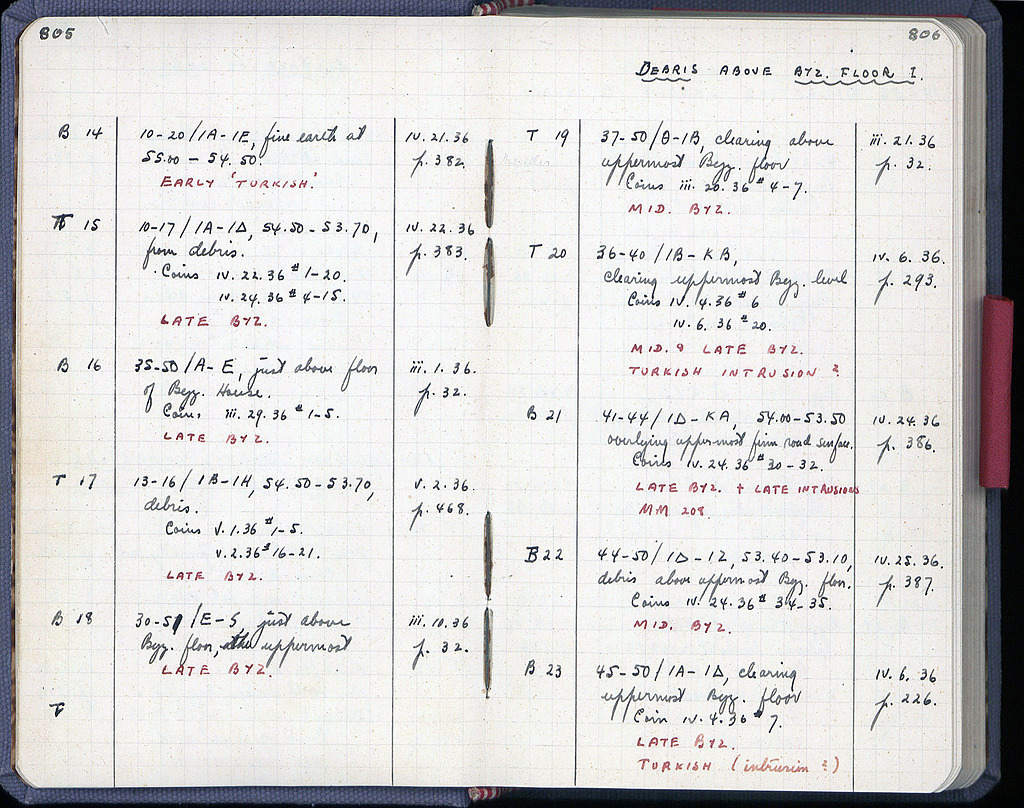 805
B 14 10-20/1A-1E, fine earth at iv.21.36
55.00 - 54.50. p. 382.
EARLY 'TURKISH'.
15 10-17/1A-1Δ, 54.50-53.70, iv.22.36
from debris. p. 383.
Coins iv.22.36 # 1-20.
iv.24.36 # 4-15.
LATE BYZ.
B 16 35-50/A-E, just above floor iii.1.36.
of Byz. House. p. 32.
Coins iii.29.36 # 1-5.
LATE BYZ.
T 17 13-16/1B-1H, 54.50-53.70, v.2.36.
debris. p. 468.
Coins v.1.36 # 1-5.
v.2.36 # 16-21.
LATE BYZ.
B 18 30-51/E-S, just above iii.10.36
Byz. floor, uppermost p. 32.
LATE BYZ.
T
806
DEBRIS ABOVE BYZ. FLOOR I.
T 19 37-50/Θ-1B, clearing above iii.21.36
uppermost Byz. floor p. 32.
Coins iii.20.36 # 4-7.
MID. BYZ.
T 20 36-40/1B-KB, iv.6.36.
clearing uppermost Byz. level p. 293.
Coins iv.4.36 # 6
iv.6.36 # 20.
MID. & LATE BYZ.
TURKISH INTRUSION ?
B 21 41-44/1Δ-KA, 54.00-53.50 iv.24.36
overlying uppermost firm road surface. p. 386.
Coins iv.24.36 # 30-32.
LATE BYZ. + LATE INTRUSIONS
MM 208.
B 22 44-50/1Δ-1Z, 53.40-53.10, iv.25.36.
debris above uppermost Byz. floor. p. 387.
Coins iv.24.36 # 34-35.
MID. BYZ.
B 23 45-50/1A-1Δ, clearing iv.6.36
uppermost Byz. floor p. 226.
Coin iv.4.36 # 7.
LATE BYZ.
TURKISH (intrusion ?)